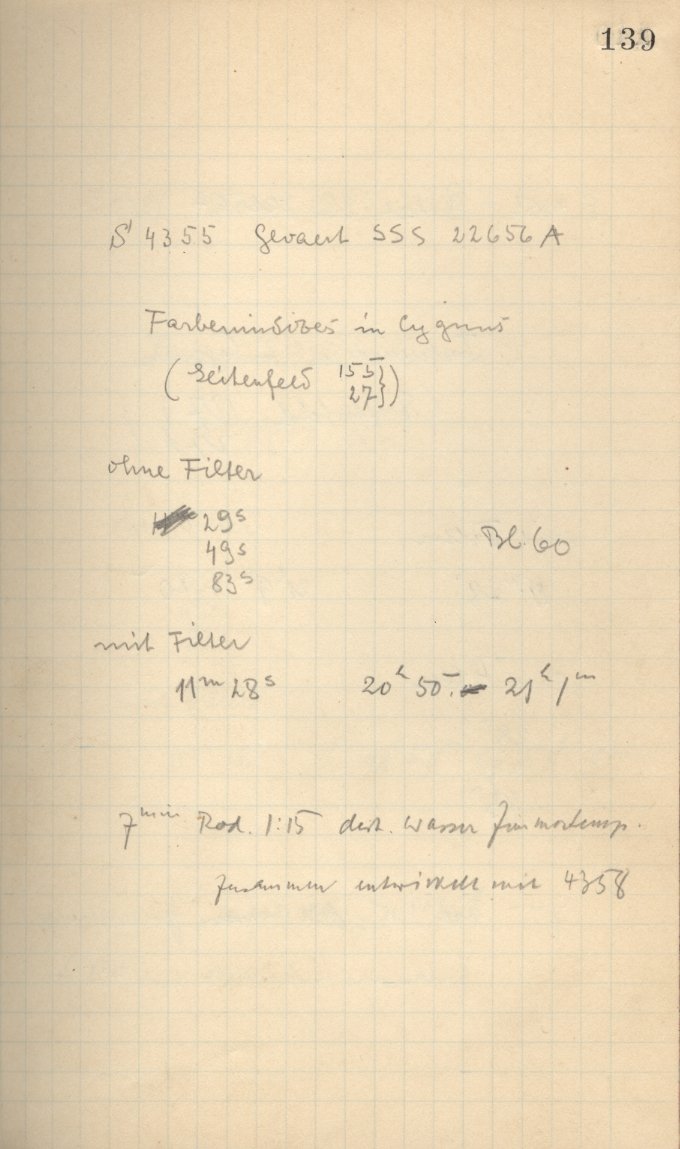 139
S 4355 Gevaert SSS 22656 A
Farbenindizes in Cygnus
(Seitenfeld 155}
27})
ohne Filter
29s
49s
83s
Bl. 60
mit Filter
11m 28s 20h 50. – 21h 1m
7min Rod. 1:15 dest. Wasser Zimmertemp.
zusammen entwickelt mit 4358